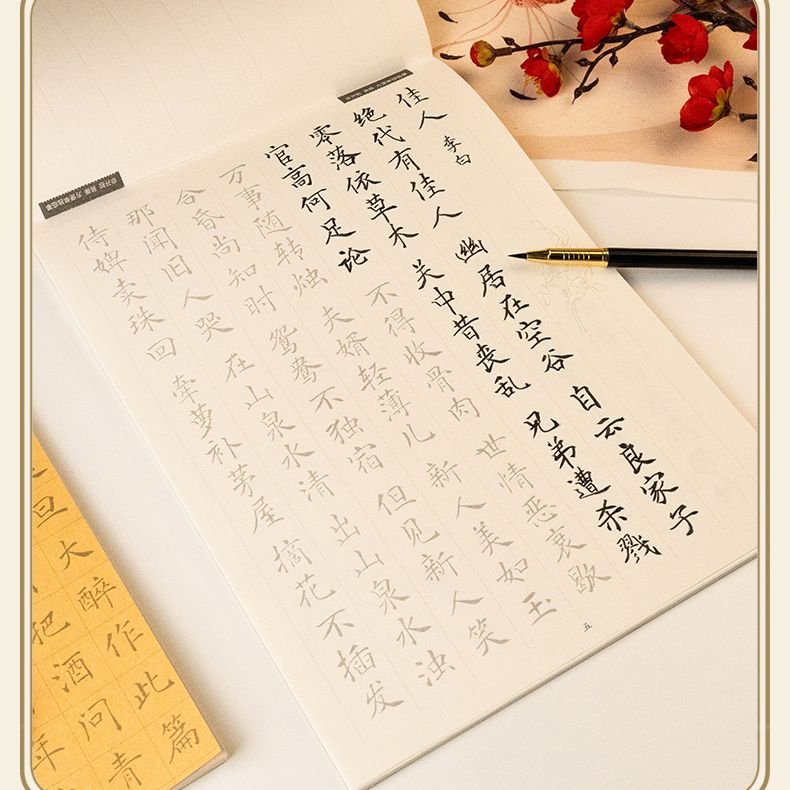 佳人 李白
绝代有佳人 幽居在空谷 自云良家子
零落依草木 关中昔丧乱 兄弟遭杀戮
官高何足论 不得收骨肉 世情恶衰歇
万事随转烛 夫婿轻薄儿 新人美如玉
合昏尚知时 鸳鸯不独宿 但见新人笑
那闻旧人哭 在山泉水清 出山泉水浊
侍婢卖珠回 牵萝补茅屋 摘花不插发
五
旦大醉作此篇
把酒问青
年